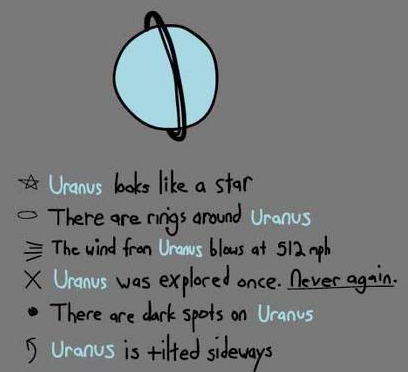 Uranus looks like a star
There are rings around Uranus
The wind from Uranus blows at 512 mph
Uranus was explored once. Never again.
There are dark spots on Uranus
Uranus is tilted sideways